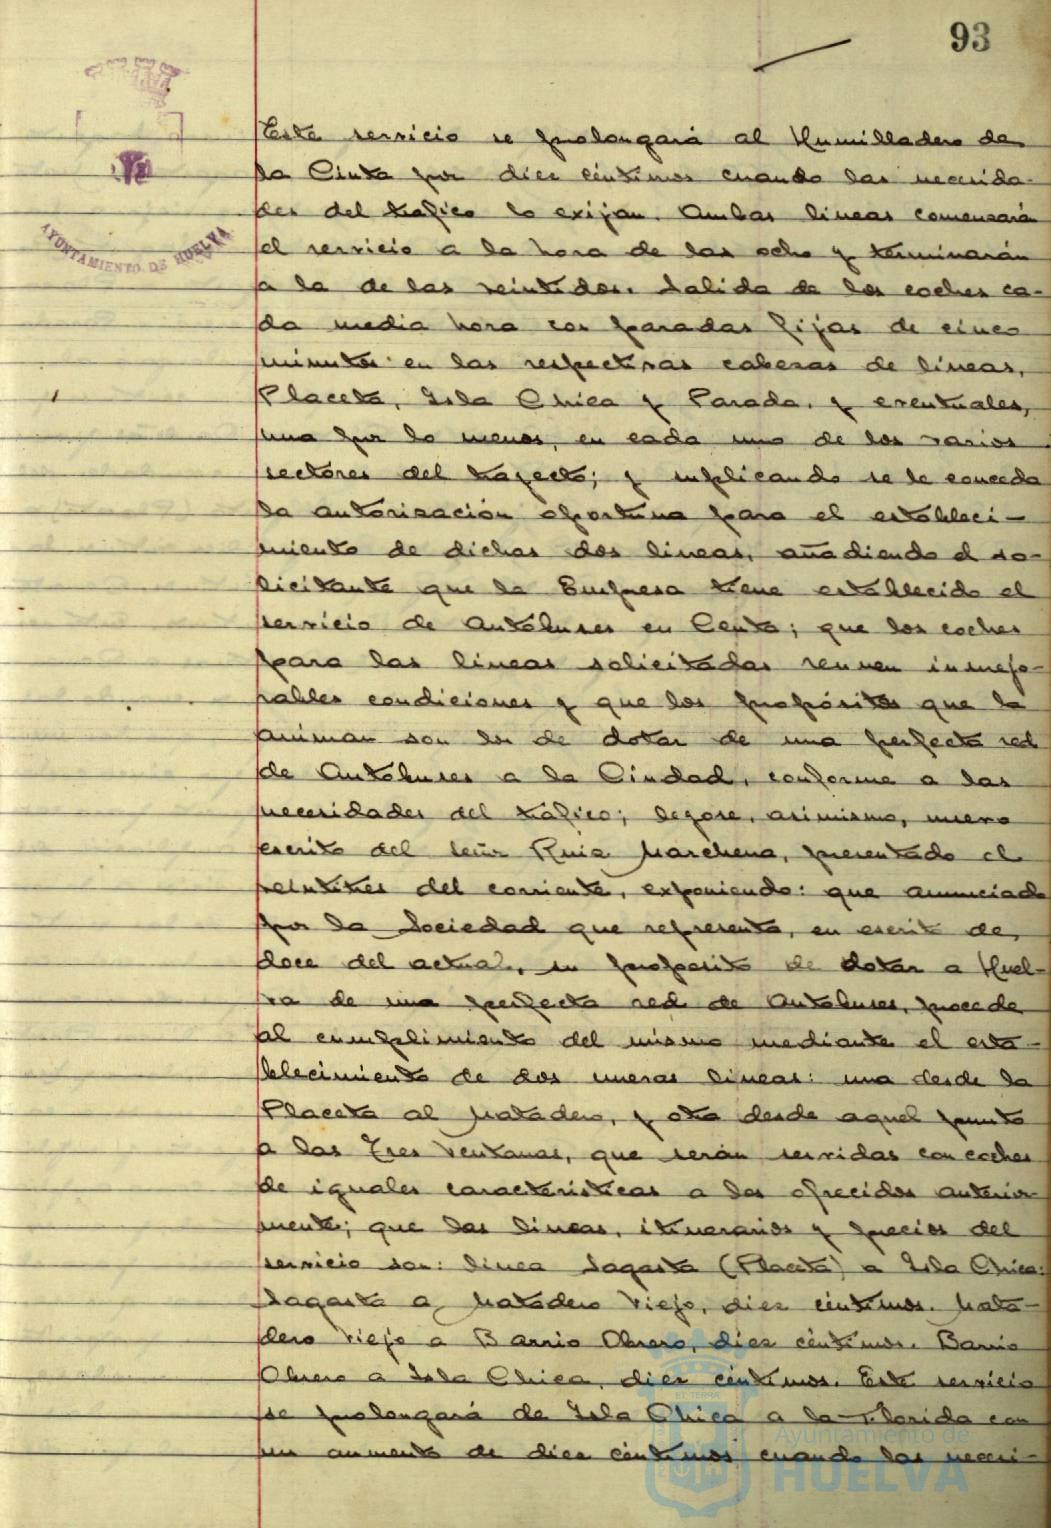 93
AYUNTAMIENTO DE HUELVA
Este servicio se prolongará al Humilladero de
la Cinta por diez céntimos cuando las necesida-
des del tráfico lo exijan. Ambas lineas comenzarán
el servicio a la hora de las ocho y terminarán
a la de las veintidos. Salida de los coches ca-
da media hora con paradas fijas de cinco
minutos en las respectivas cabezas de lineas,
Placeta, Isla Chica y Parada, y eventuales,
una por lo menos, en cada uno de los varios
sectores del trayecto; y suplicando se le conceda
la autorización oportuna para el estableci-
miento de dichas dos lineas, añadiendo el so-
licitante que la Empresa tiene establecido el
servicio de Autobuses en Ceuta; que los coches
para las lineas solicitadas reunen inmejo-
rables condiciones y que los propósitos que la
animan son los de dotar de una perfecta red
de Autobuses a la Ciudad, conforme a las
necesidades del tráfico; leyose, asimismo, nuevo
escrito del señor Ruiz Marchena, presentado el
veintitres del corriente, exponiendo: que anunciado
por la Sociedad que representa, en escrito de
doce del actual, su proposito de dotar a Huel-
va de una perfecta red de Autobuses, procede
al cumplimiento del mismo mediante el esta-
blecimiento de dos nuevas lineas: una desde la
Placeta al Matadero, y otra desde aquel punto
a las Tres Ventanas, que serán servidas con coches
de iguales características a los ofrecidos anterior-
mente; que las lineas, itinerarios y precios del
servicio son: linea Sagasta (Placeta) a Isla Chica:
Sagasta a Matadero Viejo, diez céntimos. Mata-
dero Viejo a Barrio Obrero, diez céntimos. Barrio
Obrero a Isla Chica, diez céntimos. Este servicio
se prolongará de Isla Chica a la Florida con
un aumento de diez céntimos cuando las necesi-
Ayuntamiento de
HUELVA